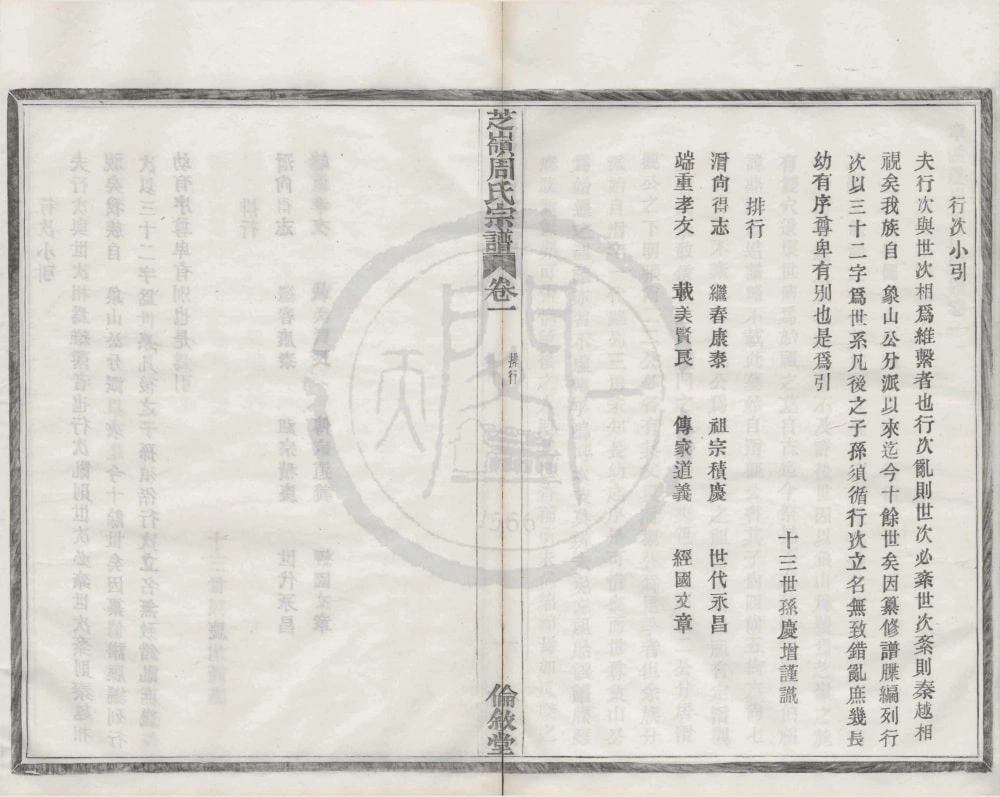 行次小引
夫行次與世次相爲維繫者也行次亂則世次必紊世次紊則秦越相
視矣我族自 象山公分派以來迄今十餘世矣因纂修譜牒編列行
次以三十二字爲世系凡後之子孫須循行次立名無致錯亂庶幾長
幼有序尊卑有别也是爲引
十三世孫慶增謹識
排行
滑尙得志 繼春康泰 祖宗積慶 世代永昌
端重孝友 載美賢良 傳家道義 經國文章
芝嶺周氏宗譜 卷一 排行 倫敘堂
1566